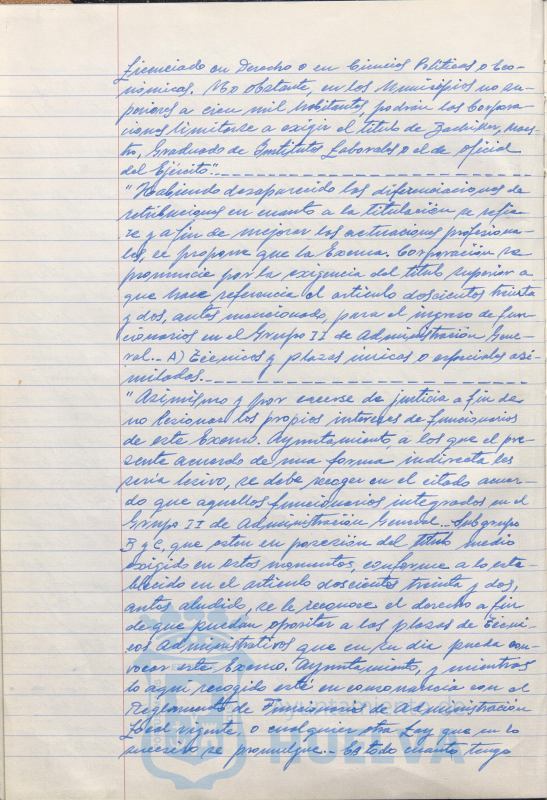 Licenciado en Derecho o en Ciencias Políticas o Eco-
nómicas. No obstante, en los Municipios no su-
periores a cien mil habitantes, podrán las Corpora-
ciones limitarse a exigir el título de Bachiller, Maes-
tro, Graduado de Institutos Laborales o el de oficial
del Ejército".-
"Habiendo desaparecido las diferenciaciones de
retribuciones en cuanto a la titulación se refie-
re y a fin de mejorar las actuaciones profesiona-
les, se propone que la Excma. Corporación se
pronuncie por la exigencia del título superior a
que hace referencia el artículo doscientos treinta
y dos, antes mencionado, para el ingreso de fun-
cionarios en el Grupo II de Administración Gene-
ral.- A) Técnicos y plazas únicas o especiales asi-
miladas.-
"Asimismo y por creerse de justicia a fin de
no lesionar los propios intereses de funcionarios
de este Excmo. Ayuntamiento, a los que el pre-
sente acuerdo de una forma indirecta les
sería lesivo, se debe recoger en el citado acuer-
do que aquellos funcionarios integrados en el
Grupo II de Administración General.- Subgrupo
B y C, que estén en posesión del título medio
exigido en estos momentos, conforme a lo esta-
blecido en el artículo doscientos treinta y dos,
antes aludido, se le reconoce el derecho a fin
de que puedan opositar a las plazas de Técni-
cos Administrativos que en su día pueda con-
vocar este Excmo. Ayuntamiento, y mientras
lo aquí recogido esté en consonancia con el
Reglamento de Funcionarios de Administración
Local vigente, o cualquier otra Ley que en lo
sucesivo se promulgue.- Es todo cuanto tengo
HUELVA